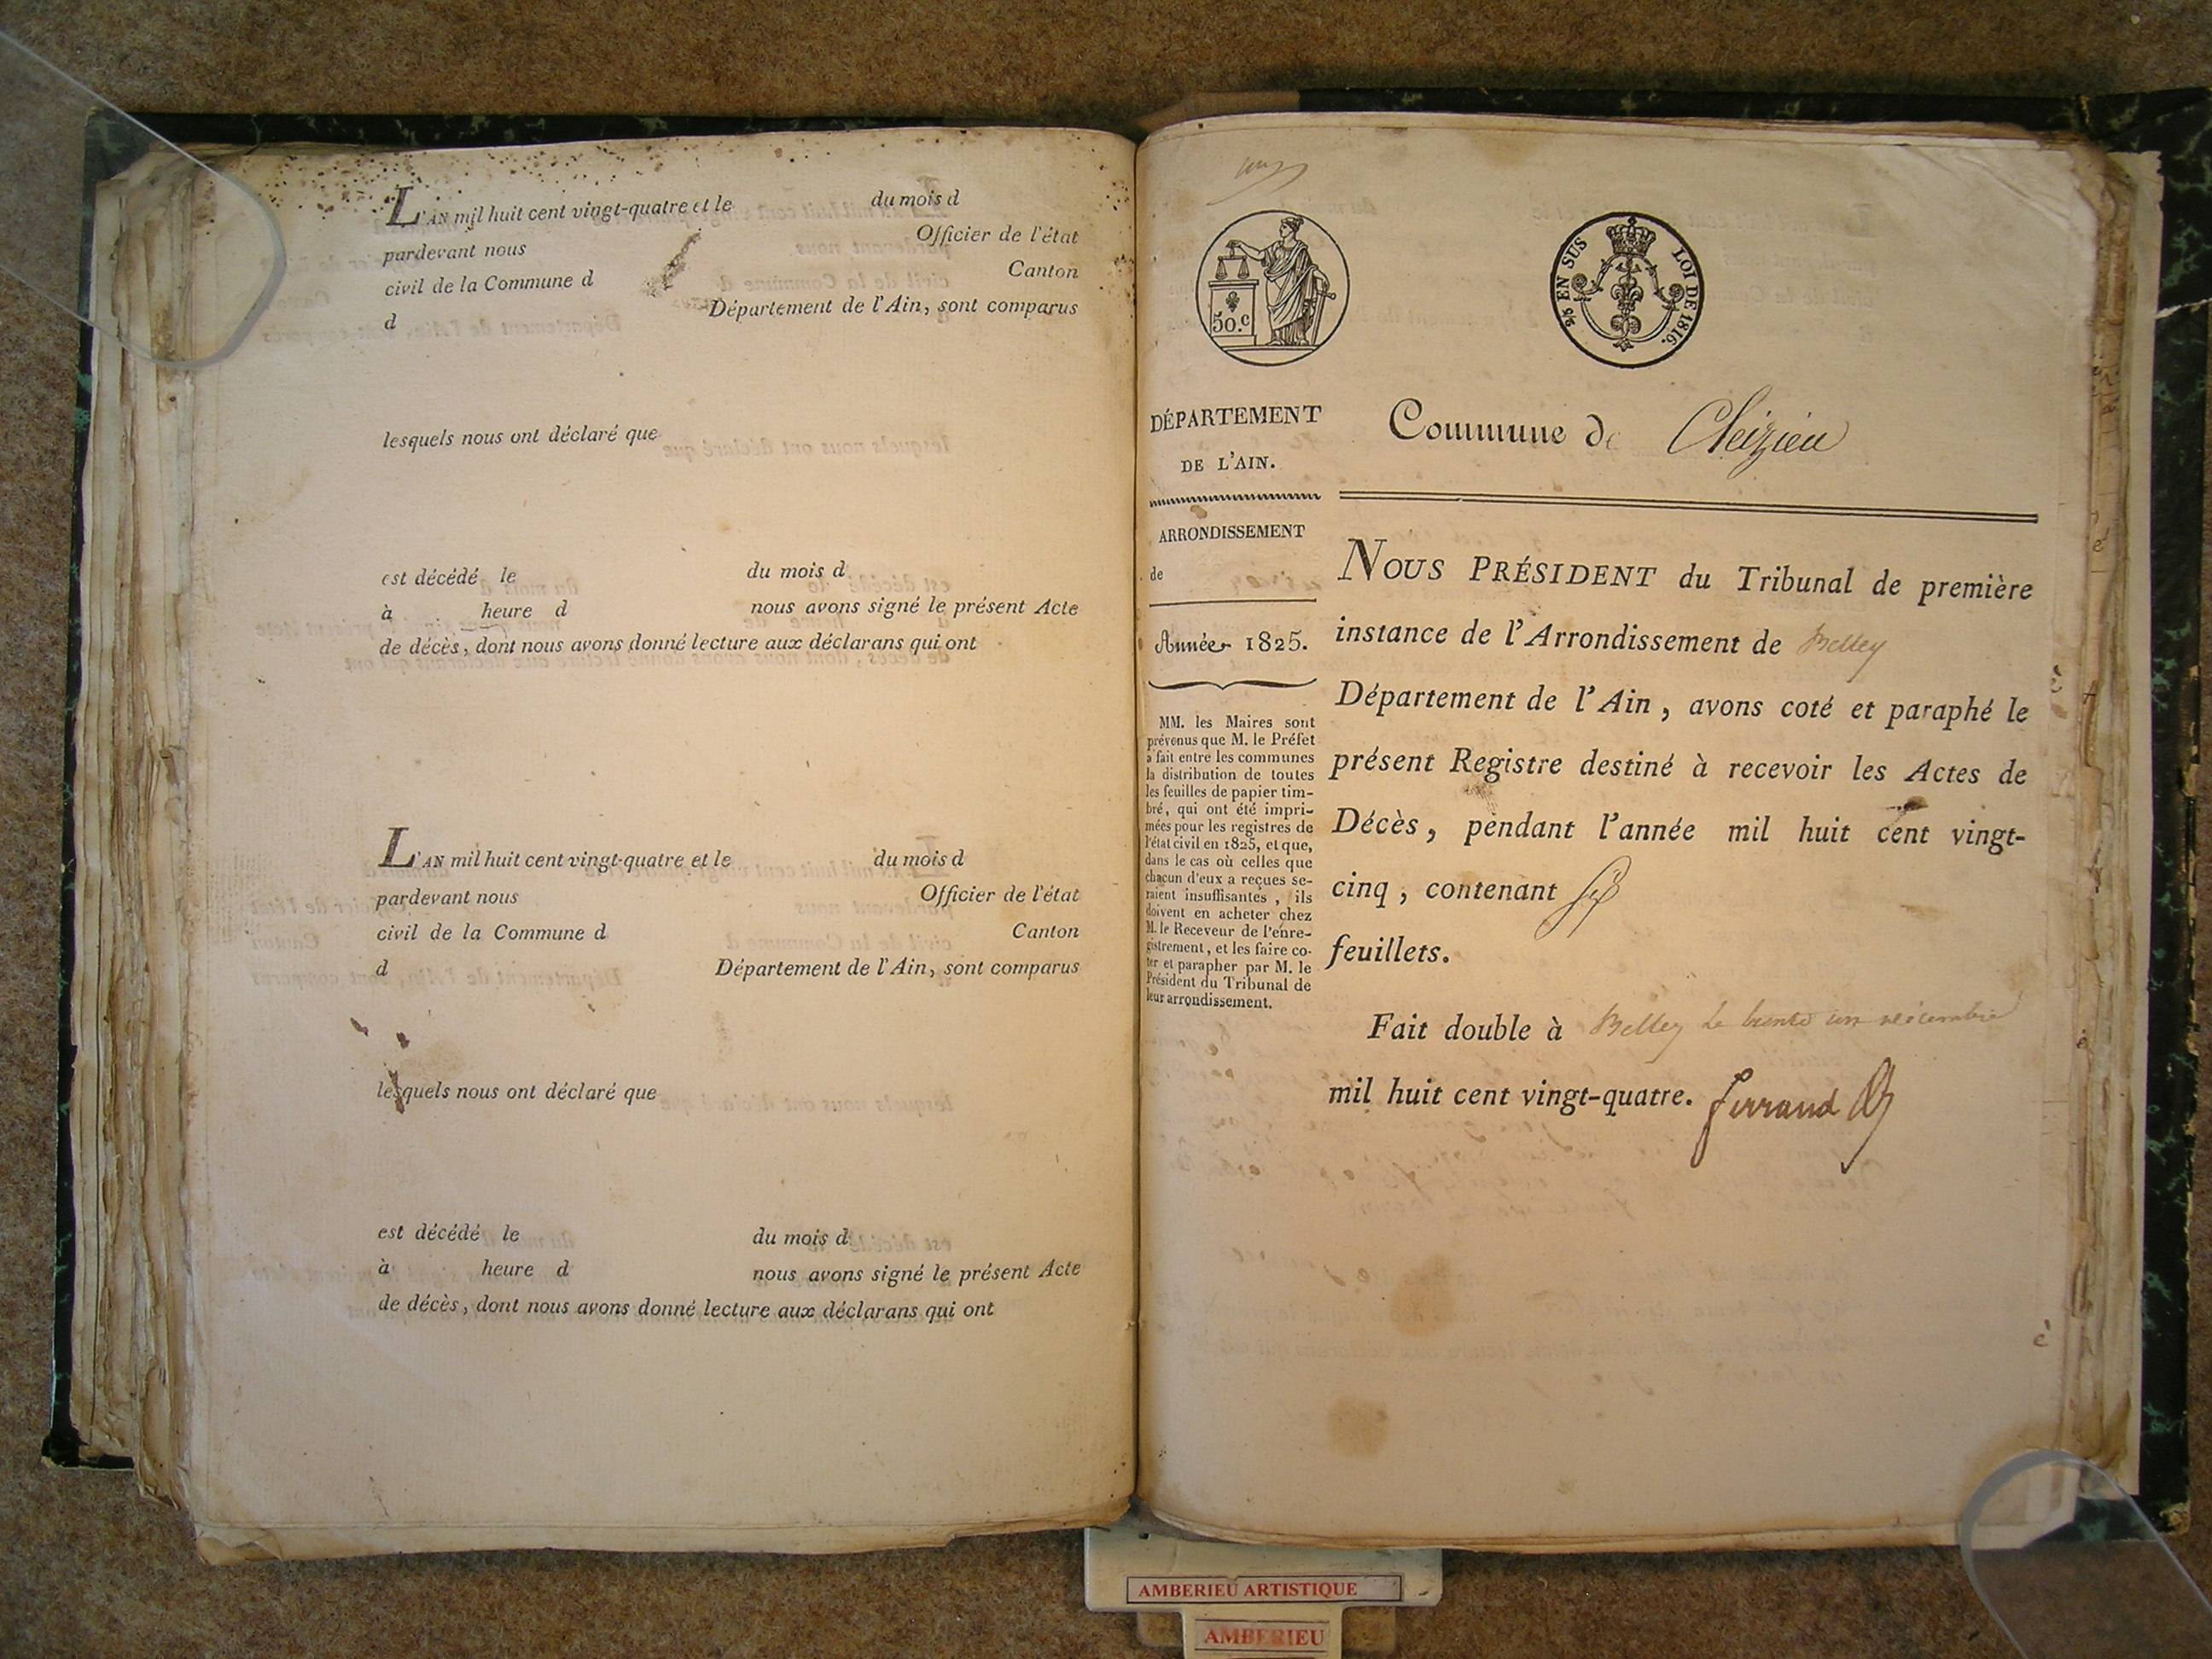 L'AN mil huit cent vingt-quatre et le du mois d
pardevant nous Officier de l'état
civil de la Commune d Canton
d Département de l'Ain, sont comparus
lesquels nous ont déclaré que
est décédé le du mois d
à heure d nous avons signé le présent Acte
de décès, dont nous avons donné lecture aux déclarans qui ont
L'AN mil huit cent vingt-quatre et le du mois d
pardevant nous Officier de l'état
civil de la Commune d Canton
d Département de l'Ain, sont comparus
lesquels nous ont déclaré que
est décédé le du mois d
à heure d nous avons signé le présent Acte
de décès, dont nous avons donné lecture aux déclarans qui ont
50.c
EN SUS LOI DE 1816.
DÉPARTEMENT
DE L'AIN.
ARRONDISSEMENT
de
Année 1825.
MM. les Maires sont
prévenus que M. le Préfet
a fait entre les communes
la distribution de toutes
les feuilles de papier tim-
bré, qui ont été impri-
mées pour les registres de
l'état civil en 1825, et que,
dans le cas où celles que
chacun d'eux a reçues se-
raient insuffisantes, ils
doivent en acheter chez
M. le Receveur de l'enre-
gistrement, et les faire co-
ter et parapher par M. le
Président du Tribunal de
leur arrondissement.
Commune de Cleizieu
NOUS PRÉSIDENT du Tribunal de première
instance de l'Arrondissement de Belley
Département de l'Ain, avons coté et paraphé le
présent Registre destiné à recevoir les Actes de
Décès, pendant l'année mil huit cent vingt-
cinq, contenant
feuillets.
Fait double à Belley le trente un décembre
mil huit cent vingt-quatre. ferrand
AMBERIEU ARTISTIQUE
AMBERIEU